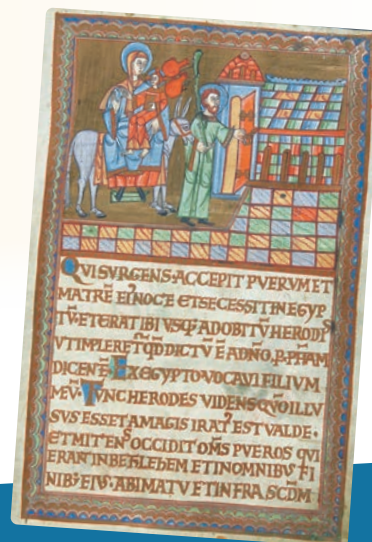 QVI SVRGENS·ACCEPIT PVERVM ET
MATRĒ EI᾽ NOCTE ET SECESSIT IN EGYP
TV̄·ET ERAT IBI VSQ᾽ AD OBITV̄ HERODI᾽
VT IMPLERET᾽ QD̄ DICTV̄ Ē A DN̄O, P. PHAM
DICENTĒ·EX EGYPTO VOCAVI FILIVM
MEV̄·TVNC HERODES VIDENS QVO ILLV
SVS ESSET, A MAGIS IRAT᾽ EST VALDE·
ET MITTENS OCCIDIT OMS̄ PVEROS QVI
ERANT IN BETHLEHEM ET IN OMNIBVS FI
NIB᾽ EIVS·A BIMATV ET INFRA SCD̄M